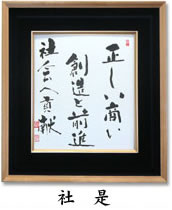 正しい商い
創造と前進
社会へ貢献
社是